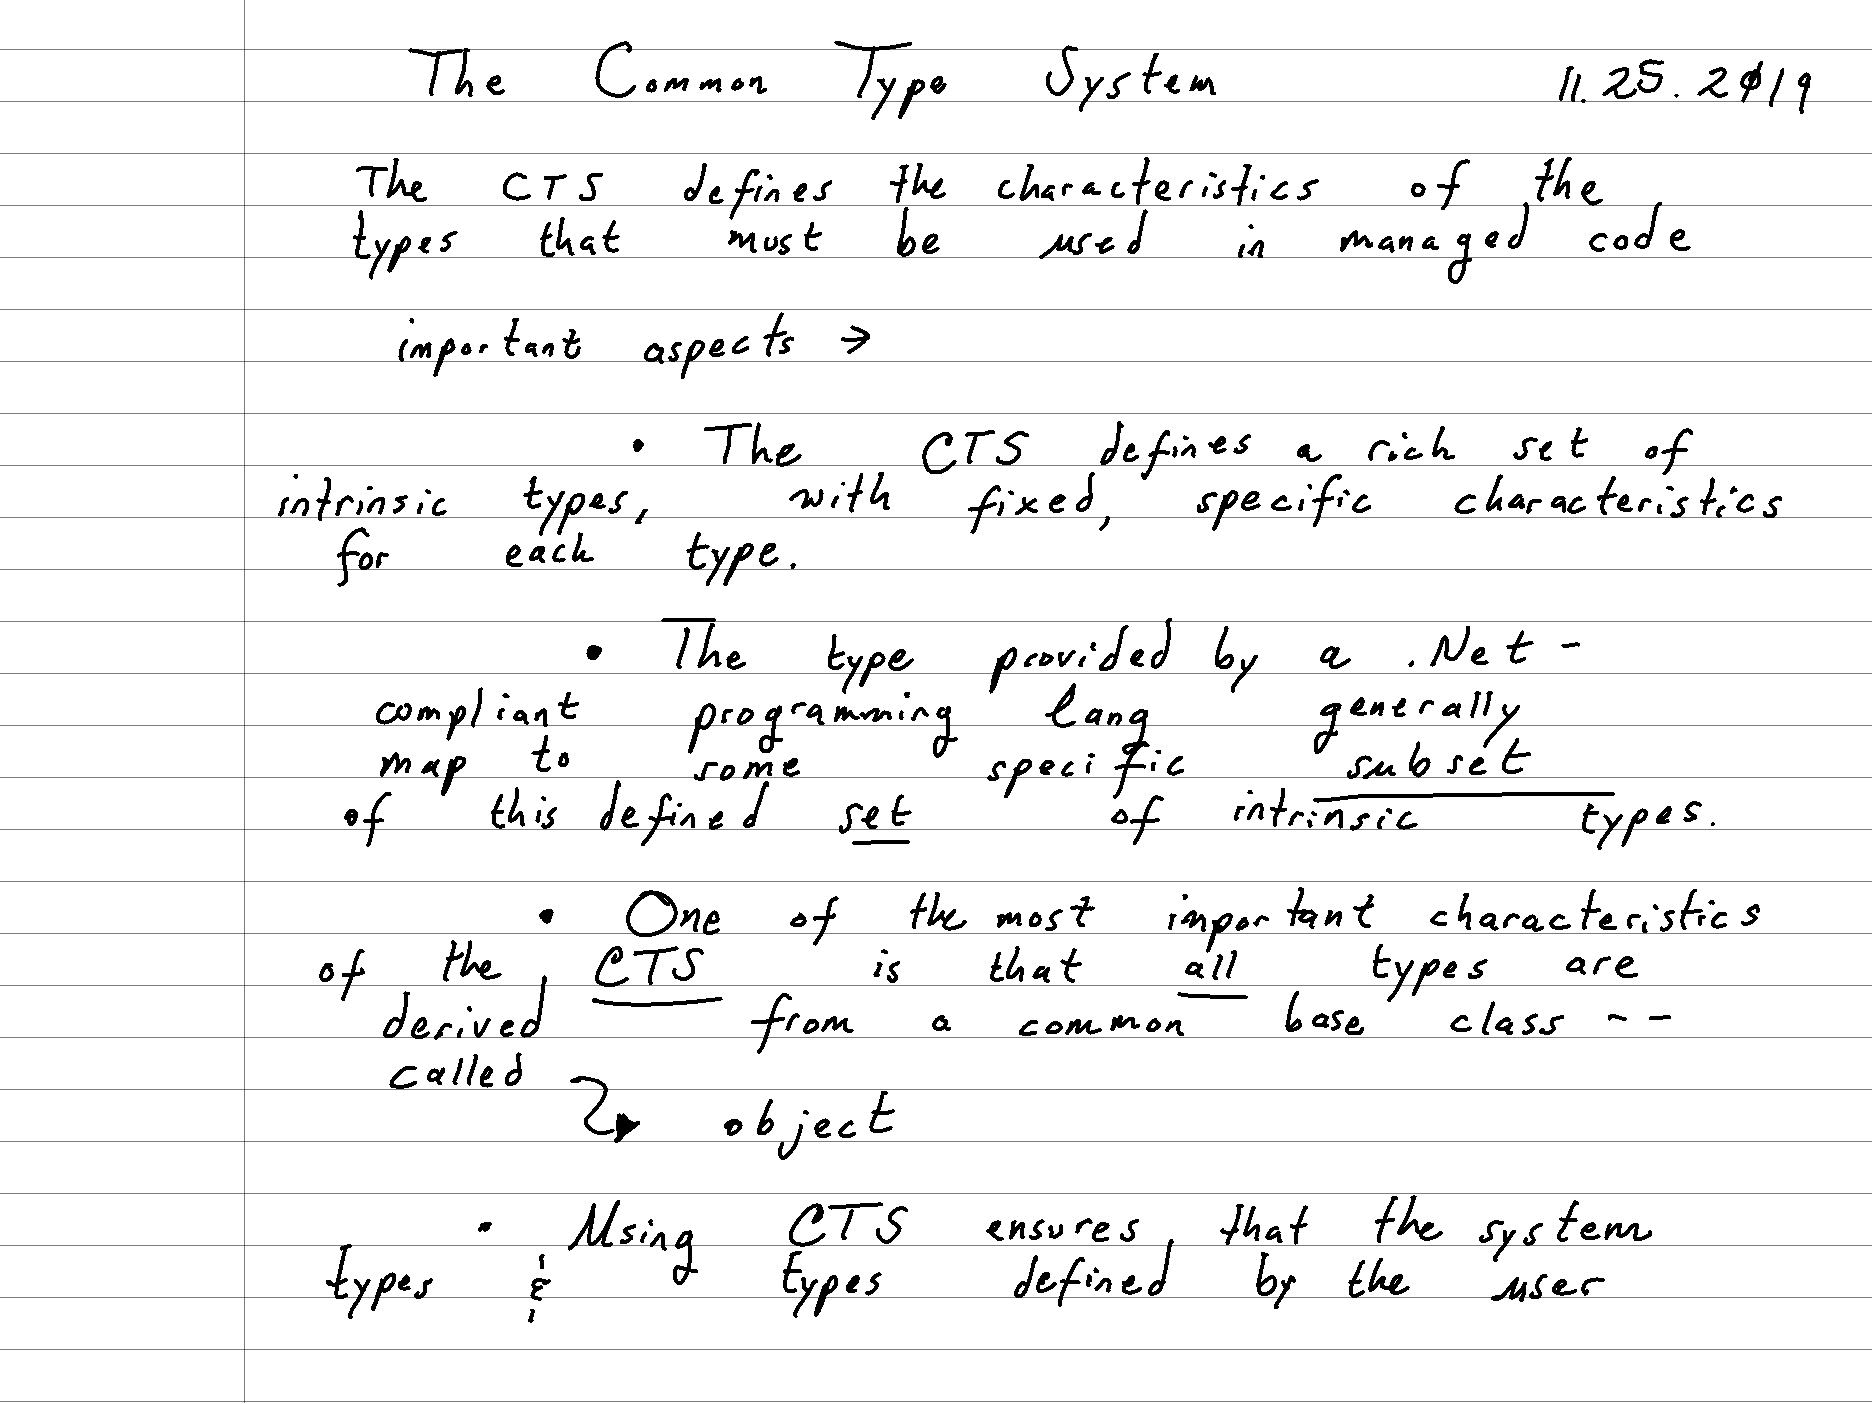 The Common Type System 11.25.2019
The CTS defines the characteristics of the
types that must be used in managed code
important aspects →
• The CTS defines a rich set of
intrinsic types, with fixed, specific characteristics
for each type.
• The type provided by a .Net -
compliant programming lang generally
map to some specific subset
of this defined set of intrinsic types.
• One of the most important characteristics
of the CTS is that all types are
derived from a common base class --
called
object
• Using CTS ensures that the system
types & types defined by the user